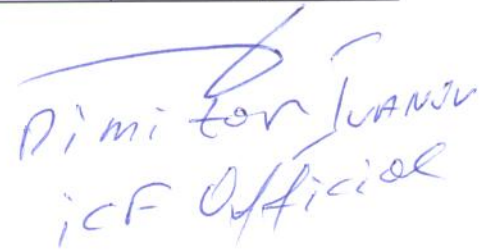 Dimitor Ivanov
iCF Official